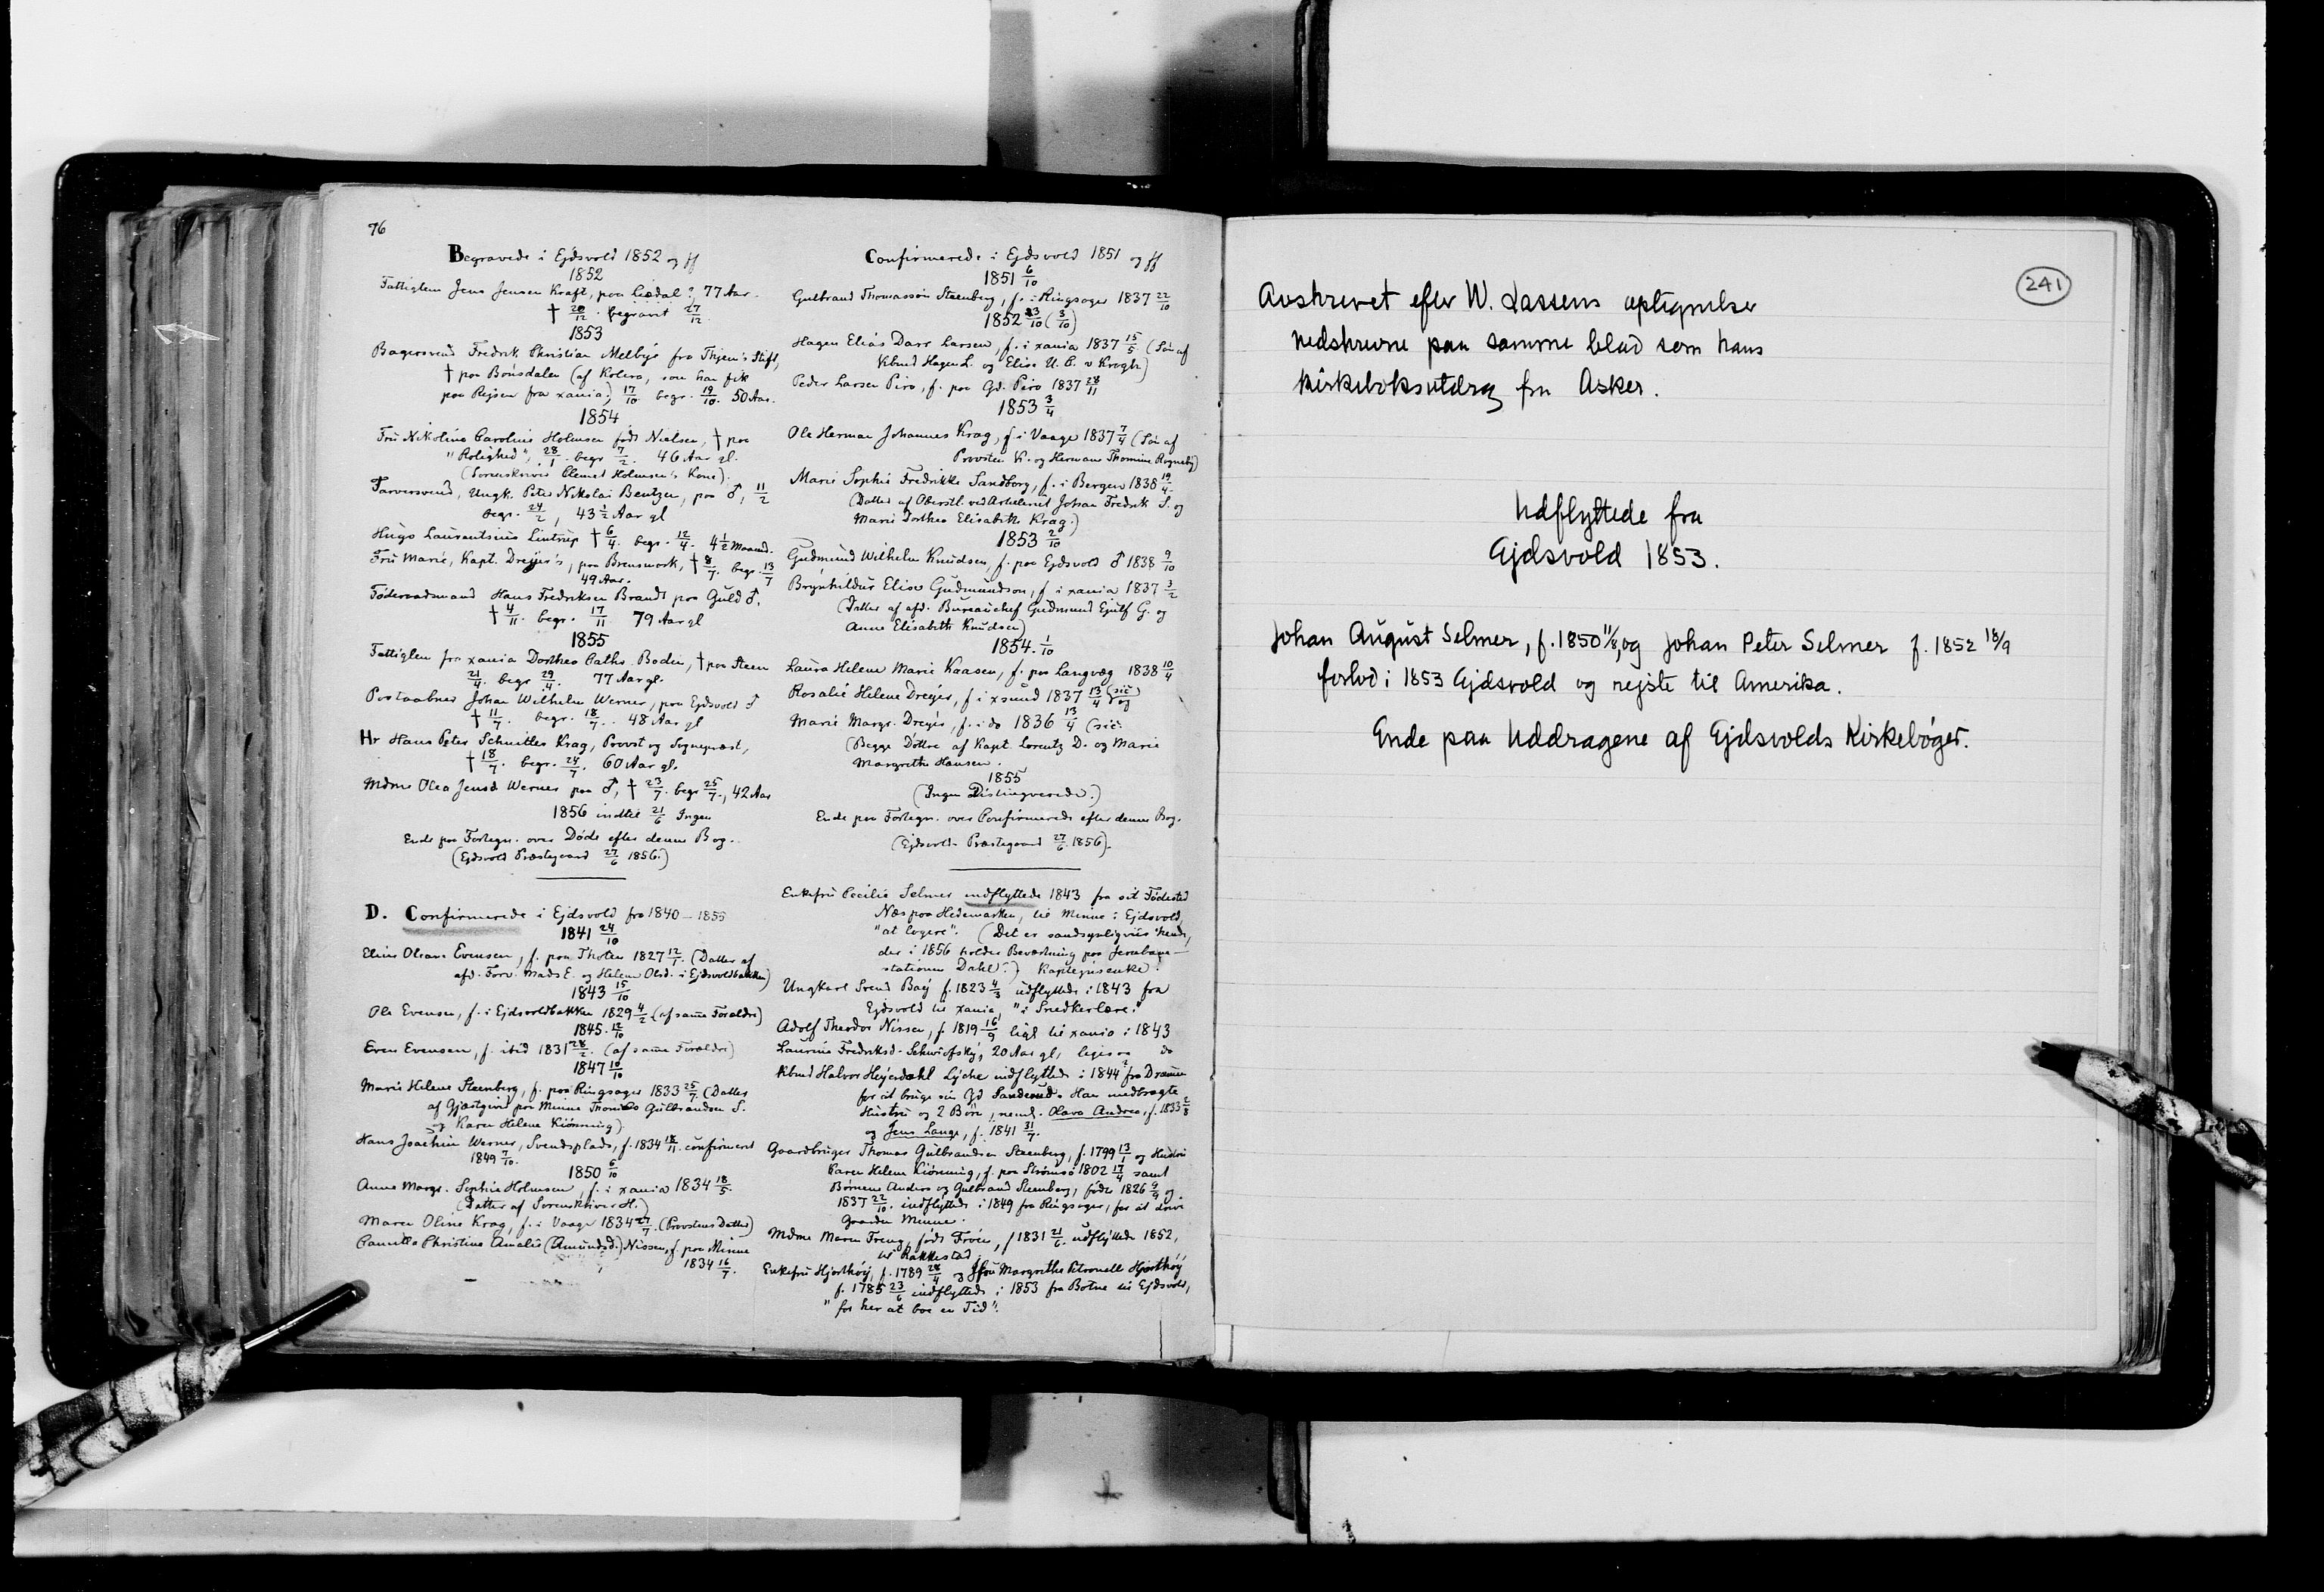 76
Begravede i Ejdsvold 1852 og ff
1852
Fattiglem Jens Jensen Kraft, paa Liødal? 77 Aar.
† 20/12. begravet 27/12.
1853
Bagersvend Fredrik Christian Melbye fra Thjem's Stift,
† paa Bønsdalen (af Kolera, som han fik
paa Rejsen fra xania) 17/10. begr. 19/10. 50 Aar.
1854
Fru Nikoline Caroline Holmsen født Nielsen, † paa
"Rolighed", 28/1. begr 7/2. 46 Aar gl.
(Sorenskriver Clemet Holmsen's Kone).
Farversvend, Ungk. Peter Nikolai Bentzen, paa ♂, 11/2
begr. 24/2, 43 1/2 Aar gl
Hugo Laurentsius Lintrup † 6/4. begr. 12/4. 4 1/2 Maaned.
Fru Marie, Kapt. Dreyer's, paa Brensmork, † 8/7. begr. 13/7
49 Aar.
Føderaadsmand Hans Fredriksen Brandt paa Guld ♂.
† 4/11. begr. 17/11 79 Aar gl
1855
Fattiglem fra xania Dorthea Caths. Bodin, † paa Steen
21/4. begr 29/4. 77 Aar gl.
Postaabner Johan Wilhelm Werner, paa Ejdsvold ♂
† 11/7. begr. 18/7. 48 Aar gl
Hr Hans Peter Schnitler Krag, Provst og Sogneprest,
† 18/7. begr. 24/7. 60 Aar gl.
Mdme Olea Jensd Werner paa ♂, † 23/7. begr 25/7., 42 Aar
1856 indtil 21/6 Ingen
Ende paa Fortegn. over Døde efter denne Bog.
(Ejdsvold Præstegaard 27/6 1856.)
D. Confirmerede i Ejdsvold fra 1840–1855
1841 24/10
Eline Oleane Evensen, f. paa Thoten 1827 12/1. (Datter af
afd. Forv. Mads E. og Helene Olsd. i Ejdsvoldbakken)
1843 15/10
Ole Evensen, f. i Ejdsvoldbakken 1829 4/2 (af samme Forældre)
1845. 12/10
Even Evensen, f. ibid 1831 28/2. (af samme Forældre)
1847 10/10
Marie Helene Steenberg, f. paa Ringsager 1833 25/7 (Datter
af Gjæstgiver paa Minne Thomas Gulbrandsen S.
og Karen Helene Kiønning)
Hans Joachim Werner, Svendsplads, f. 1834 18/11. confirmeret
1849 7/10.
1850 6/10
Anne Margr. Sophie Holmsen, f. i xania 1834 18/5.
(Datter af Sorenskriver H.)
Maren Oline Krag, f. i Vaage 1834 27/7. (Provstens Datter)
Camilla Christine Amalie (Amundsd.) Nissen, f. paa Minne
1834 16/7.
Confirmerede i Ejdsvold 1851 og ff
1851 6/10
Gulbrand Thomassøn Steenberg, f. i Ringsager 1837 22/10
1852 3/10 (3/10)
Hagen Elias Darr Larsen, f. i xania 1837 15/5 (Søn af
Kbmd Hagen L. og Elise U. C. v Krogh)
Peder Larsen Piro, f. paa Gd. Piro 1837 28/11
1853 3/4
Ole Herman Johannes Krag, f. i Vaage 1837 7/4 (Søn af
Provsten K. og Hermane Thomine Rogneby)
Marie Sophie Fredrikke Sandborg, f. i Bergen 1838 19/4.
(Datter af Oberstl. ved Artelleriet Johan Fredrik S. og
Marie Dorthea Elisabeth Krag.)
1853 2/10
Gudmund Wilhelm Knudsen, f. paa Ejdsvold ♂ 1838 9/10
Brynhildur Elise Gudmundson, f i xania 1837 3/2
(Datter af afd. Bureauchef Gudmund Ejulf G. og
Anne Elisabeth Knudsen)
1854. 1/10
Laura Helene Marie Kaasen, f. paa Langvæg 1838 10/4
Rosalie Helene Dreyer, f i xsund 1837 13/4 (sic) og
Marie Margr. Dreyer, f. i do 1836 13/4 (sic
(Begge Døttre af Kapt. Lorentz D. og Marie
Margrethe Hansen.
1855
(Ingen Distingverede.)
Ende paa Fortegn. over Confirmerede efter denne Bog.
(Ejdsvold Præstegaard 27/6 1856).
Enkefru Cecilie Selmer indflyttede 1843 fra sit Fødested
Næs paa Hedemarken, til Minne i Ejdsvold,
"at logere". (Det er sandsynligviis hende,
der i 1856 holder Beværtning paa Jernbane-
stationen Dahl?) Kapteinsenke.
Ungkarl Svend Bay f. 1823 4/3 udflyttede i 1843 fra
Ejdsvold til xania, "i Snedkerlære."
Adolf Theodor Nissen, f. 1819 16/9 ligl til xania i 1843
Laurine Fredriksd. Schwofsky, 20 Aar gl, ligesaa do
Kbmd Halvor Heyerdahl Lyche indflyttede i 1844 fra Drammen
for at bruge sin Gd Sanderud. Han medbragte
Hustru og 2 Børn, neml. Olava Andrea, f. 1833 2/8
og Jens Lange, f. 1841 31/7.
Gaardbruger Thomas Gulbrandsen Steenberg, f. 1799 13/1 og Hustru
Karen Helene Kiønning, f. paa Strømsø 1802 17/4 samt
Børnene Anders og Gulbrand Steenberg, fødte 1826 9/9 og
1837 22/10. indflyttede i 1849 fra Ringsager, for at drive
Gaarden Minne.
Mdme Maren Freng, født Frøen, f 1831 21/6. udflyttede 1852,
til Rakkestad.
Enkefru Hjorthøy, f. 1789 28/4 og Jfru Margrethe Petronelle Hjorthøy
f. 1785 23/6 indflyttede i 1853 fra Botne til Ejdsvold,
"for her at boe en Tid".
241
Avskrevet efter W. Lassens optegnelser
nedskrevne paa samme blad som hans
kirkeboksutdrag fra Asker.
Udflyttede fra
Ejdsvold 1853.
Johan August Selmer, f. 1850 11/8, og Johan Peter Selmer f. 1852 18/9
forlod i 1853 Ejdsvold og rejste til Amerika.
Ende paa Uddragene af Ejdsvolds Kirkebøger.